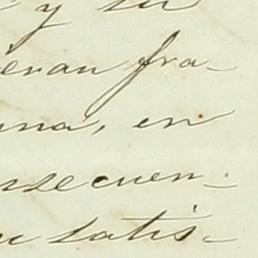 y su
eran fra-
una, en
nsecuen-
satis-